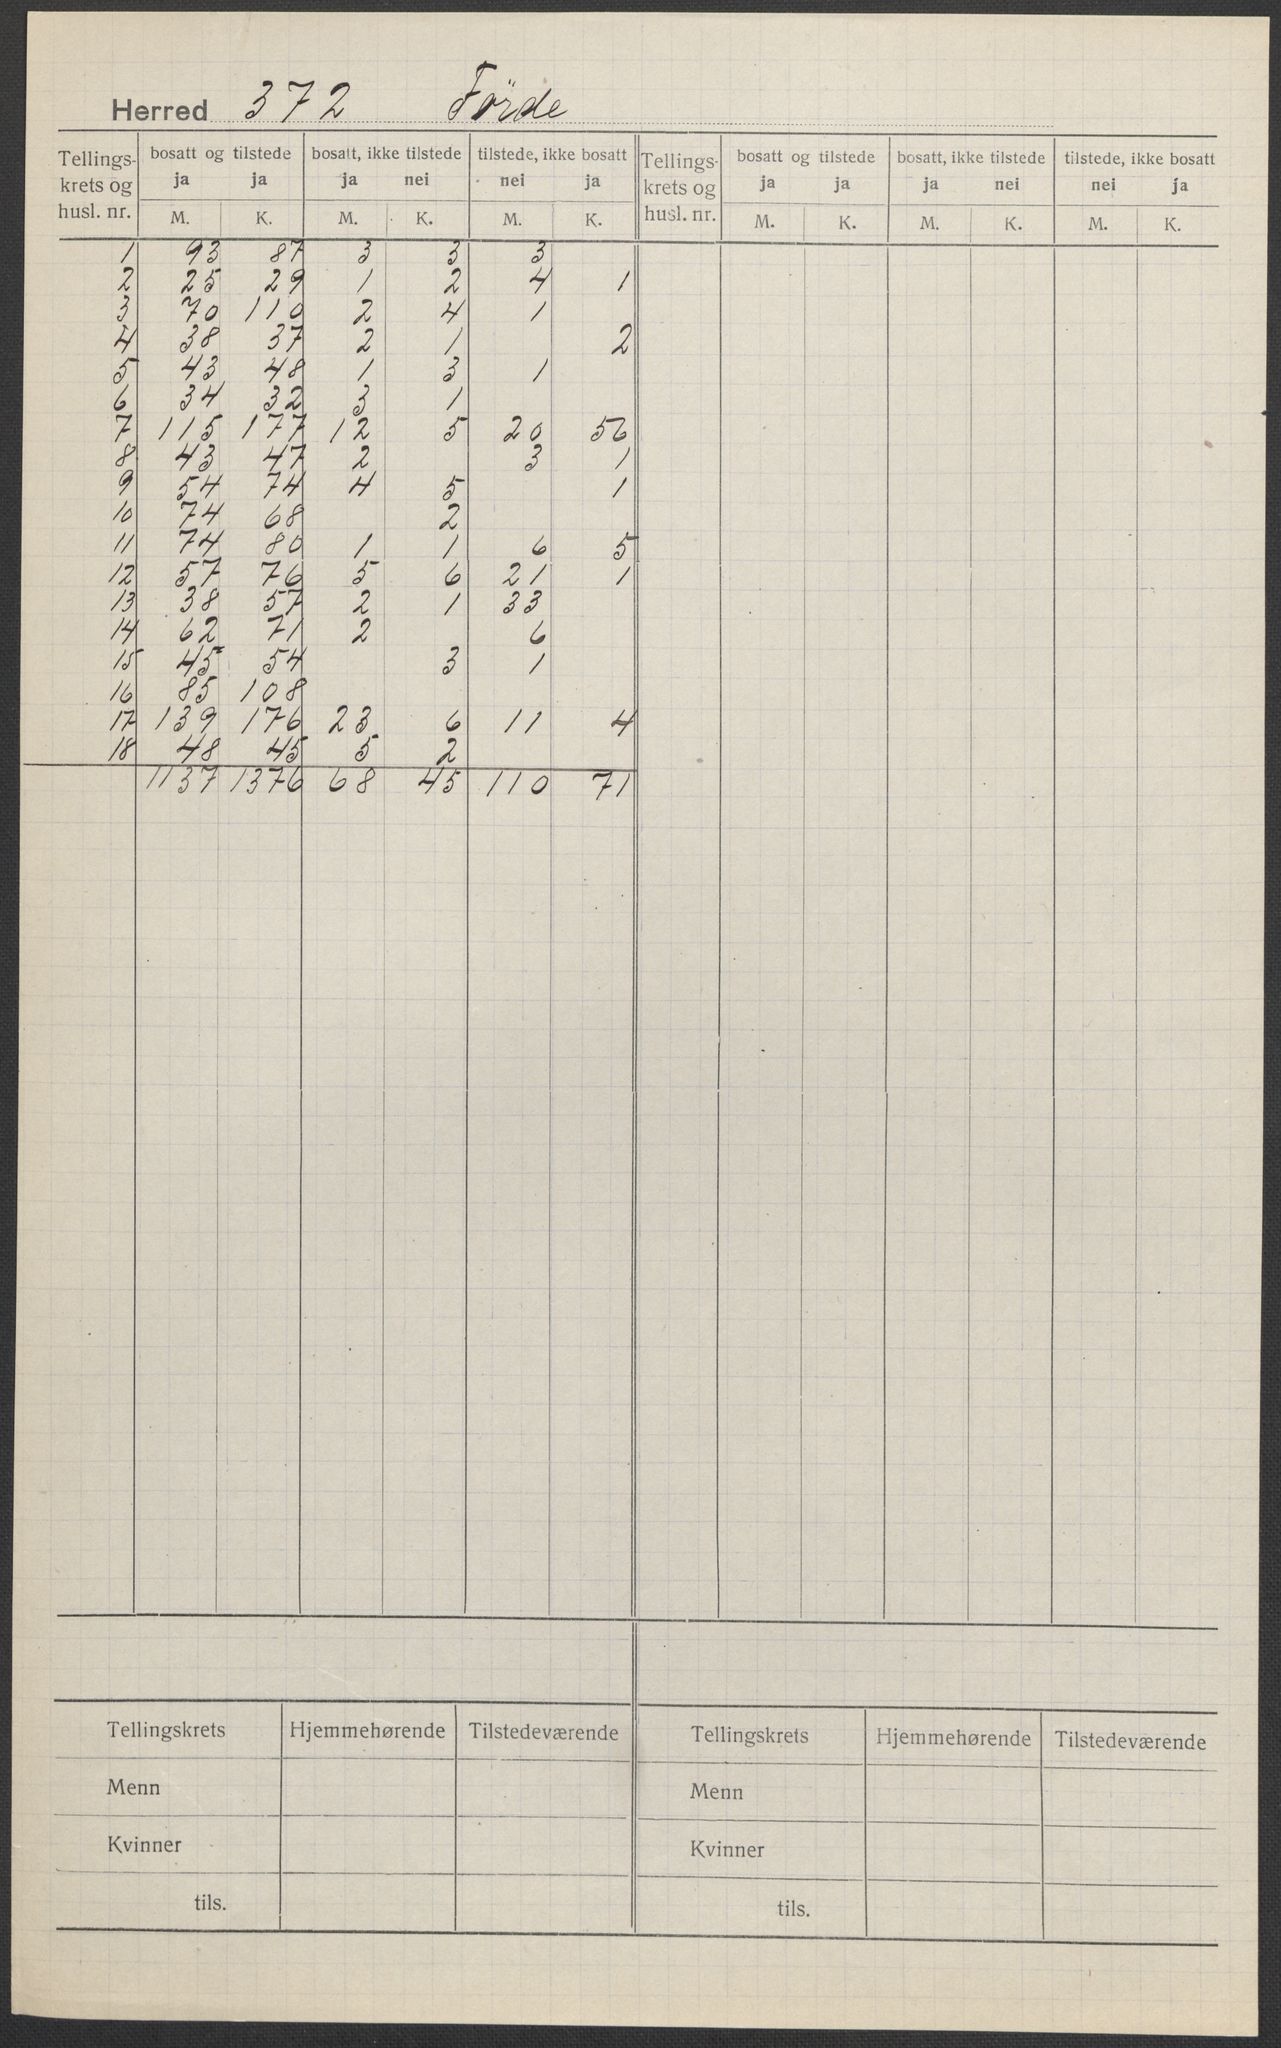 Herred 372 Förde
Tellings- krets og husl. nr. | bosatt og tilstede | bosatt, ikke tilstede | tilstede, ikke bosatt | Tellings- krets og husl. nr. | bosatt og tilstede | bosatt, ikke tilstede | tilstede, ikke bosatt
ja ja | ja nei | nei ja | ja ja | ja nei | nei ja
M. K. | M. K. | M. K. | M. K. | M. K. | M. K.
1 93 87 3 3 3
2 25 29 1 2 4 1
3 70 110 2 4 1
4 38 37 2 1 2
5 43 48 1 3 1
6 34 32 3 1
7 115 177 12 5 20 56
8 43 47 2 3 1
9 54 74 4 5 1
10 74 68 2
11 74 80 1 1 6 5
12 57 76 5 6 21 1
13 38 57 2 1 33
14 62 71 2 6
15 45 54 3 1
16 85 108
17 139 176 23 6 11 4
18 48 45 5 2
1137 1376 68 45 110 71
Tellingskrets | Hjemmehørende | Tilstedeværende | Tellingskrets | Hjemmehørende | Tilstedeværende
Menn | Menn
Kvinner | Kvinner
tils. | tils.